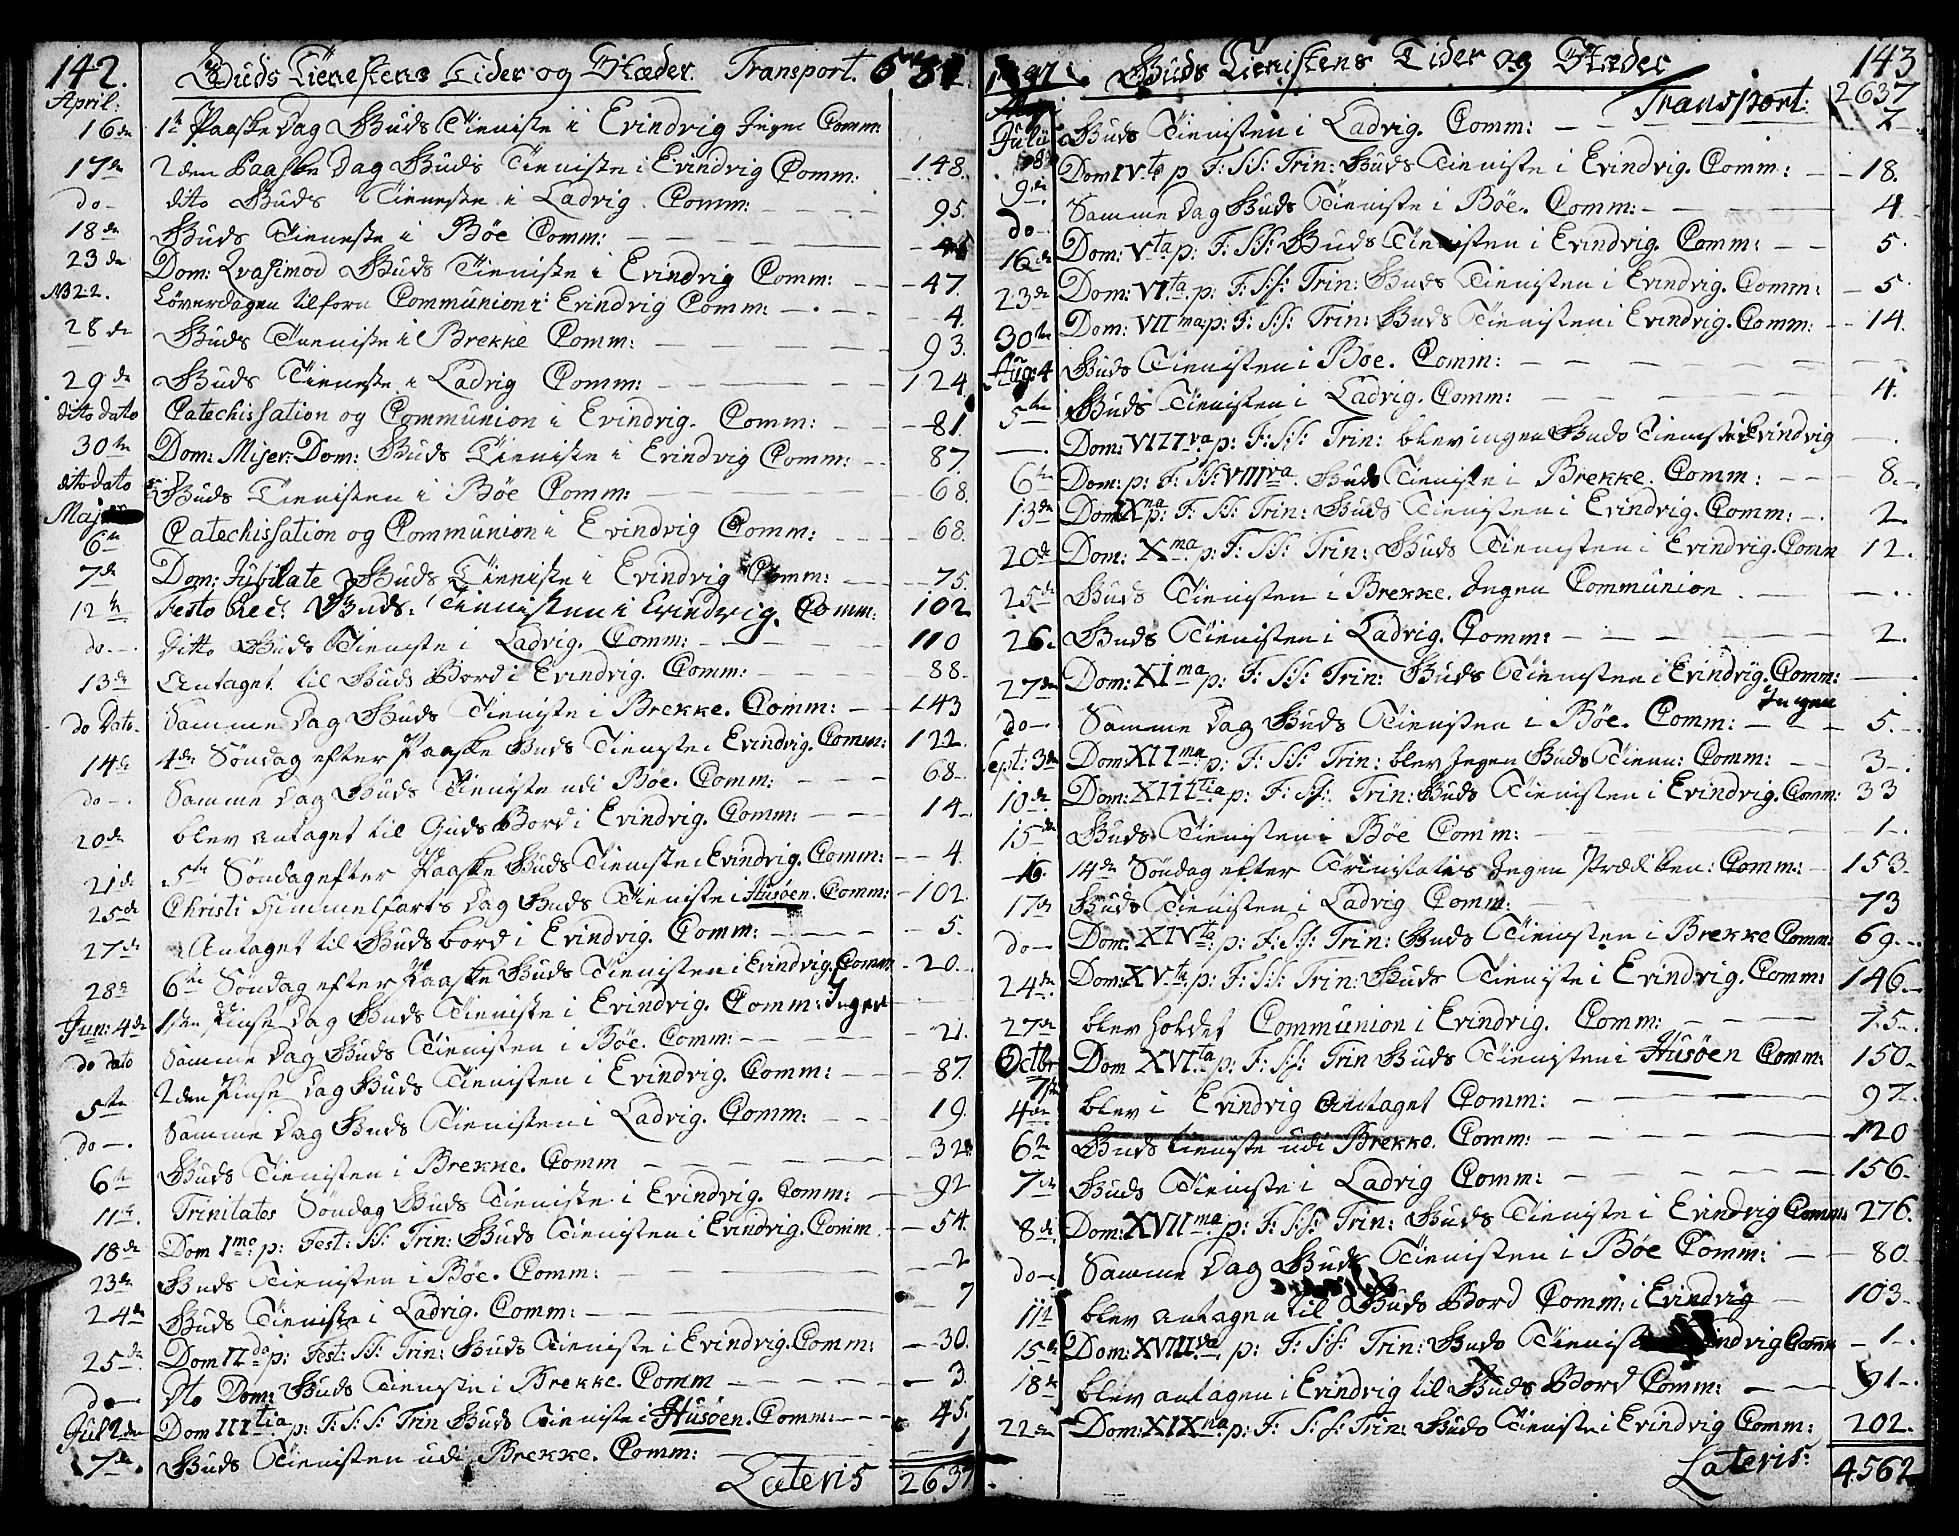 142. Guds Tienestens Tider og Stæder. Transport.
April:
16de 1te Paaske Dag Guds Tieniste i Evindvig Ingen Comm:
17de 2den Paaske Dag Guds Tieniste i Evindvig Comm: 148.
do dito Guds Tieneste i Ladvig. Comm: 95.
18de Guds Tieneste i Böe Comm:
23de Dom: Qvasimod Guds Tieniste i Evindvig Comm: 47.
NB 22. Löverdagen tilforn Communion i Evindvig Comm: 4.
28de Guds Tieniste i Brekke Comm: 93.
29de Guds Tieneste i Ladvig Comm: 124
dito dato Catechissation og Communion i Evindvig. Comm: 81.
30te Dom: Miser: Dom: Guds Tieniste i Evindvig Comm: 87.
dito dato Guds Tienisten i Böe Comm: 68.
Maj
6te Catechissation og Communion i Evindvig Comm: 68.
7de Dom: Jubilate Guds Tieniste i Evindvig Comm: 75.
12te Festo Guds: Tienisten i Evindvig. Comm: 102
do Ditto Guds Tieniste i Ladvig. Comm: 110
13de Antaget til Guds Bord i Evindvig. Comm: 88.
do Dato. Samme Dag Guds Tieniste i Brekke. Comm: 143
14de 4de Söndag efter Paaske Guds Tieniste i Evindvig. Comm: 122.
do Samme Dag Guds Tieniste udi Böe. Comm: 68.
20de blev antaget til Guds Bord i Evindvig. Comm: 14.
21de 5te Söndag efter Paaske Guds Tieniste i Evindvig. Comm: 4.
25de Christi Himmelfarts Dag Guds Tieniste i Husöen. Comm: 102.
27de Antaget til Guds bord i Evindvig. Comm: 5.
28de 6te Söndag efter Paaske Guds Tienisten i Evindvig. Comm: 20.
Jun: 4de 1ste Pinse Dag Guds Tieniste i Evindvig. Comm: Ingen
do dato Samme Dag Guds Tienisten i Böe. Comm: 21.
5te 2den Pinse Dag Guds Tienisten i Evindvig. Comm: 87.
do Samme Dag Guds Tienisten i Ladvig. Comm: 19.
6te Guds Tienisten i Brekke. Comm 32
11te Trinitates Söndag Guds Tieniste i Evindvig. Comm: 92
18de Dom 1mo p: Fest: SS: Trin: Guds Tienisten i Evindvig. Comm. 54.
23de Guds Tienisten i Böe. Comm: 2
24de Guds Tieniste i Ladvig. Comm: 7
25de Dom II da p: Fest: SS: Trin: Guds Tieniste i Evindvig. Comm: 30.
do Dto Dom: Guds Tieniste i Brekke. Comm 3.
Jul 2den Dom III tia p: F: S: S: Trin Guds Tieniste i Husöen. Comm: 45.
7de Guds Tienisten udi Brekke. Comm: 1
Lateris 2637
Guds Tienistens Tider og Stæder 143
Transport: 2637
Julii Guds Tienisten i Ladvig. Comm: 7
9de Dom IV.ta p F: SS: Trin: Guds Tieniste i Evindvig. Comm: 18.
do Samme Dag Guds Tieniste i Böe. Comm: 4.
16de Dom: V ta p: F: SS: Guds Tienisten i Evindvig. Comm: 5.
23de Dom: VI.ta p: F: SS: Trin: Guds Tienisten i Evindvig. Comm: 5.
30te Dom: VII ma: p: F: SS: Trin: Guds Tienisten i Evindvig. Comm: 14.
Aug: 4 Guds Tienisten i Böe. Comm:
5te Guds Tienisten i Ladvig. Comm: 4.
Dom: VIII va p: F: SS: Trin: blev ingen Guds Tieniste i Evindvig
6te Dom: p: F: SS: VIII va. Guds Tieniste i Brekke. Comm: 8.
13de Dom IX na p: F: SS: Trin: Guds Tienisten i Evindvig. Comm: 2.
20de Dom: X ma p: F: SS: Trin: Guds Tienisten i Evindvig. Comm 12.
25de Guds Tienisten i Brekke. Ingen Communion
26. Guds Tienisten i Ladvig. Comm: 2.
27de Dom: XI ma p: F: SS: Trin: Guds Tienisten i Evindvig. Comm: Ingen
do Samme Dag Guds Tienisten i Böe. Comm: 5.
Sept: 3de Dom XII ma p: F: SS: Trin: blev Ingen Guds Tien: Comm: 3.
10de Dom: XIII tia p: F: SS: Trin: Guds Tienisten i Evindvig. Comm: 33
15de Guds Tienisten i Böe Comm: 1.
16. 14de Söndag efter Trinitatis Ingen Prædiken: Comm: 153.
17de Guds Tienisten i Ladvig Comm: 73
do Dom: XIV ta: p: F: SS: Trin: Guds Tienisten i Brekke Comm: 69.
24de Dom: XV ta: p: F: SS: Trin: Guds Tieniste i Evindvig. Comm: 146.
27de blev holdet Communion i Evindvig. Comm: 75.
Octbr 1ste Dom XVI ta p: F: SS: Trin Guds Tienisten i Husöen Comm: 150.
4de blev i Evindvig Antaget Comm: 97.
6te Guds tieniste udi Brekke. Comm: 120
7de Guds Tieniste i Ladvig Comm: 156.
8de Dom: XVII ma p: F: SS: Trin: Guds Tieniste i Evindvig Comm: 276.
do Samme Dag Guds Tienisten i Böe Comm: 80
11te blev antagen til Guds Bord Comm: i Evindvig 103.
15de Dom: XVIII va p: F: SS: Trin: Guds Tieniste Evindvig Comm 1.
18de blev antagen i Evindvig til Guds Bord Comm: 91.
22de Dom: XIX na p: F: SS: Trin: Guds Tieniste i Evindvig Comm: 202.
Lateris: 4562